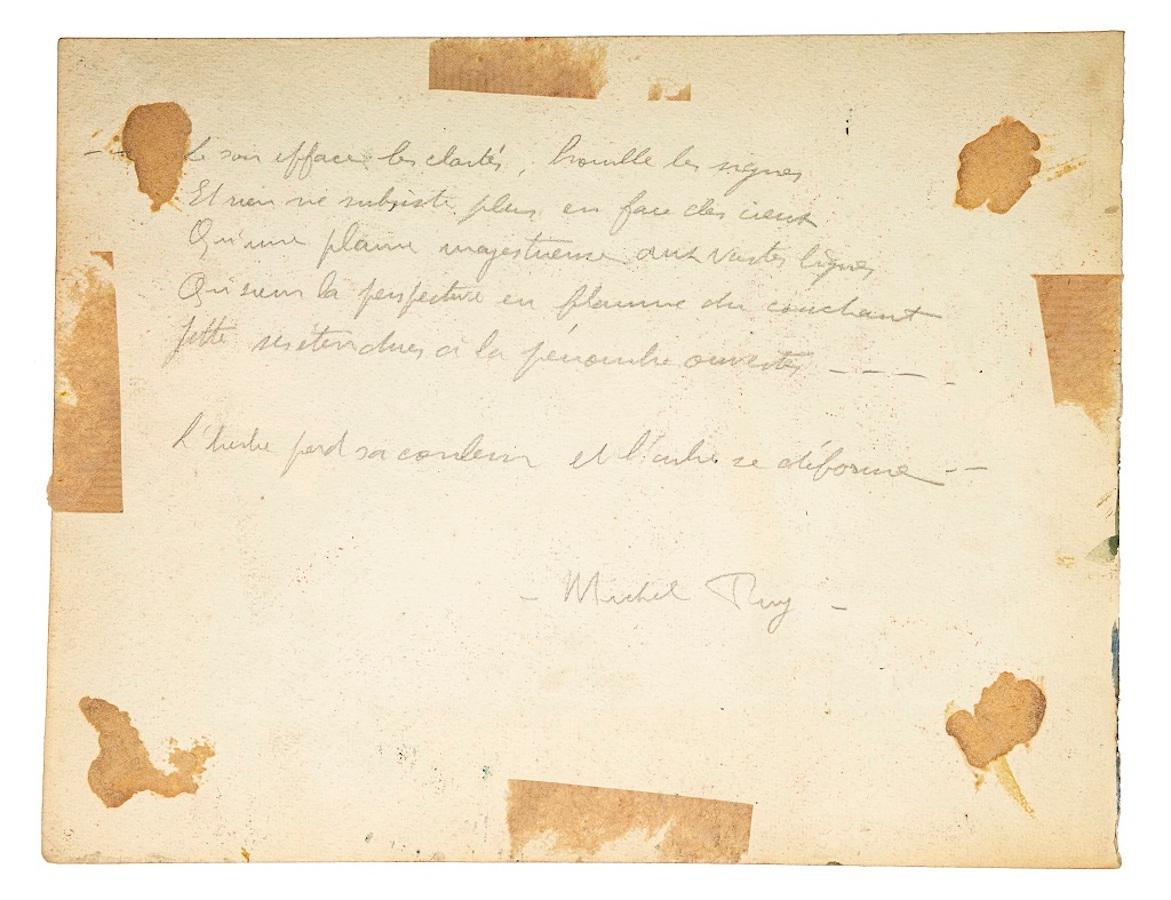 -- Le soir efface les clartés, brouille les signes
Et rien ne subsiste plus en face des cieux
Qu'une plaine majestueuse aux vastes lignes
Qui sous la perspective en flamme du couchant
Jette ses étendues à la pénombre ouvertes ----
L'herbe perd sa couleur et l'arbre se déforme --
- Michel -